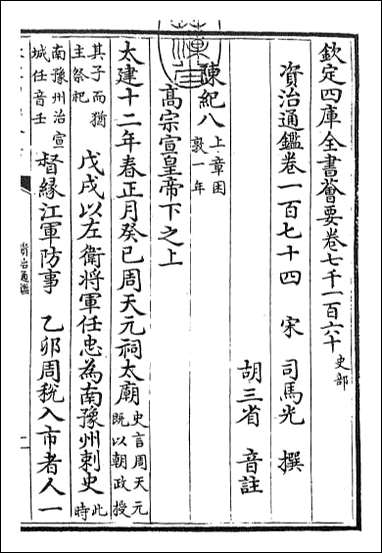 欽定四庫全書薈要卷七千一百六十 史部
資治通鑑卷一百七十四 宋 司馬光 撰
胡三省 音註
陳紀八 上章困敦一年
高宗宣皇帝下之上
太建十二年春正月癸巳周天元祠太廟 史言周天元既以朝政授
其子而猶主祭祀 戊戌以左衛將軍任忠為南豫州刺史 此時
南豫州治宣城任音壬 督緣江軍防事 乙卯周稅入市者人一